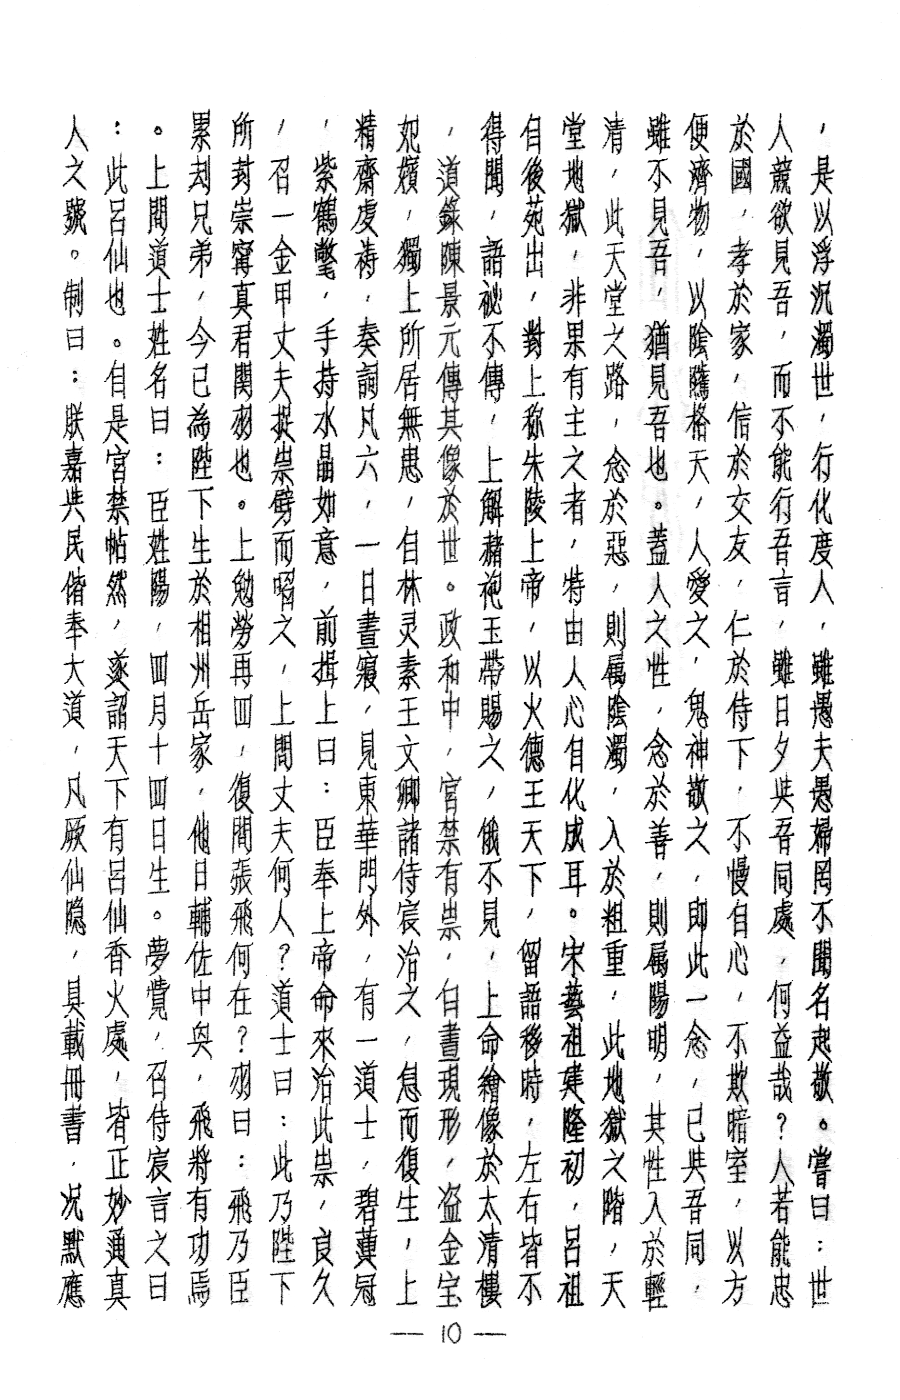 ，是以浮沉濁世，行化度人，雖愚夫愚婦罔不聞名起敬。嘗曰：世
人競欲見吾，而不能行吾言，雖日夕与吾同處，何益哉？人若能忠
於國，孝於家，信於交友，仁於侍下，不慢自心，不欺暗室，以方
便濟物，以陰騭格天，人愛之，鬼神敬之，即此一念，已与吾同，
雖不見吾，猶見吾也。蓋人之性，念於善，則屬陽明，其性入於輕
清，此天堂之路，念於惡，則屬陰濁，入於粗重，此地獄之階，天
堂地獄，非果有主之者，特由人心自化成耳。宋藝祖建隆初，呂祖
自後苑出，對上称朱陵上帝，以火德王天下，留語移時，左右皆不
得聞，語祕不傳，上解赭袍玉帶賜之，俄不見，上命繪像於太清樓
，道錄陳景元傳其像於世。政和中，宮禁有祟，白晝現形，盜金宝
妃嬪，獨上所居無患，自林灵素王文卿諸侍宸治之，息而復生，上
精齋虔祷，奏詞凡六，一日晝寢，見東華門外，有一道士，碧蓮冠
，紫鶴氅，手持水晶如意，前揖上曰：臣奉上帝命來治此祟，良久
，召一金甲丈夫捉祟劈而啗之，上問丈夫何人？道士曰：此乃陛下
所封崇甯真君関羽也。上勉勞再四，復問張飛何在？羽曰：飛乃臣
累刦兄弟，今已為陛下生於相州岳家，他日輔佐中興，飛將有功焉
。上問道士姓名曰：臣姓陽，四月十四日生。夢覺，召侍宸言之曰
：此呂仙也。自是宮禁帖然，遂詔天下有呂仙香火處，皆正妙通真
人之號。制曰：朕嘉与民偕奉大道，凡厥仙隐，具載冊書，况默應
— 10 —